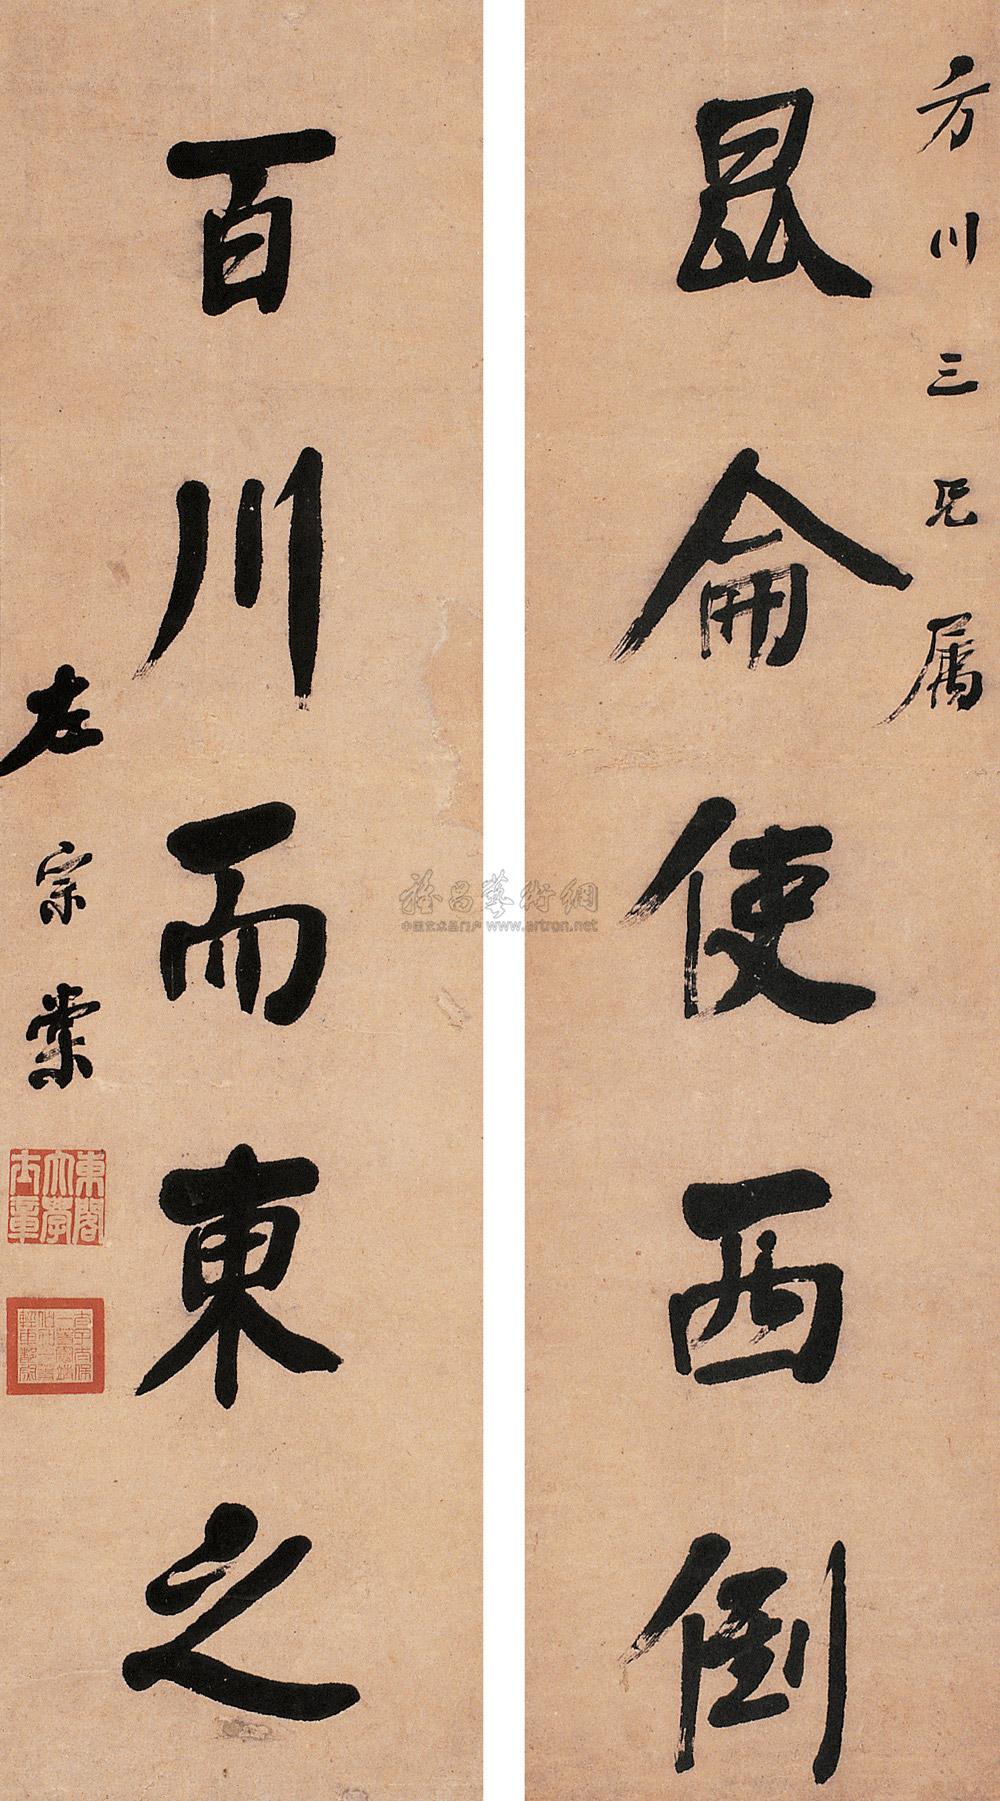 方川三兄属
昆侖使西倒
百川而東之
左宗棠
東閣
大學
士章
雅昌藝術網
中国艺术品门户 www.artron.net